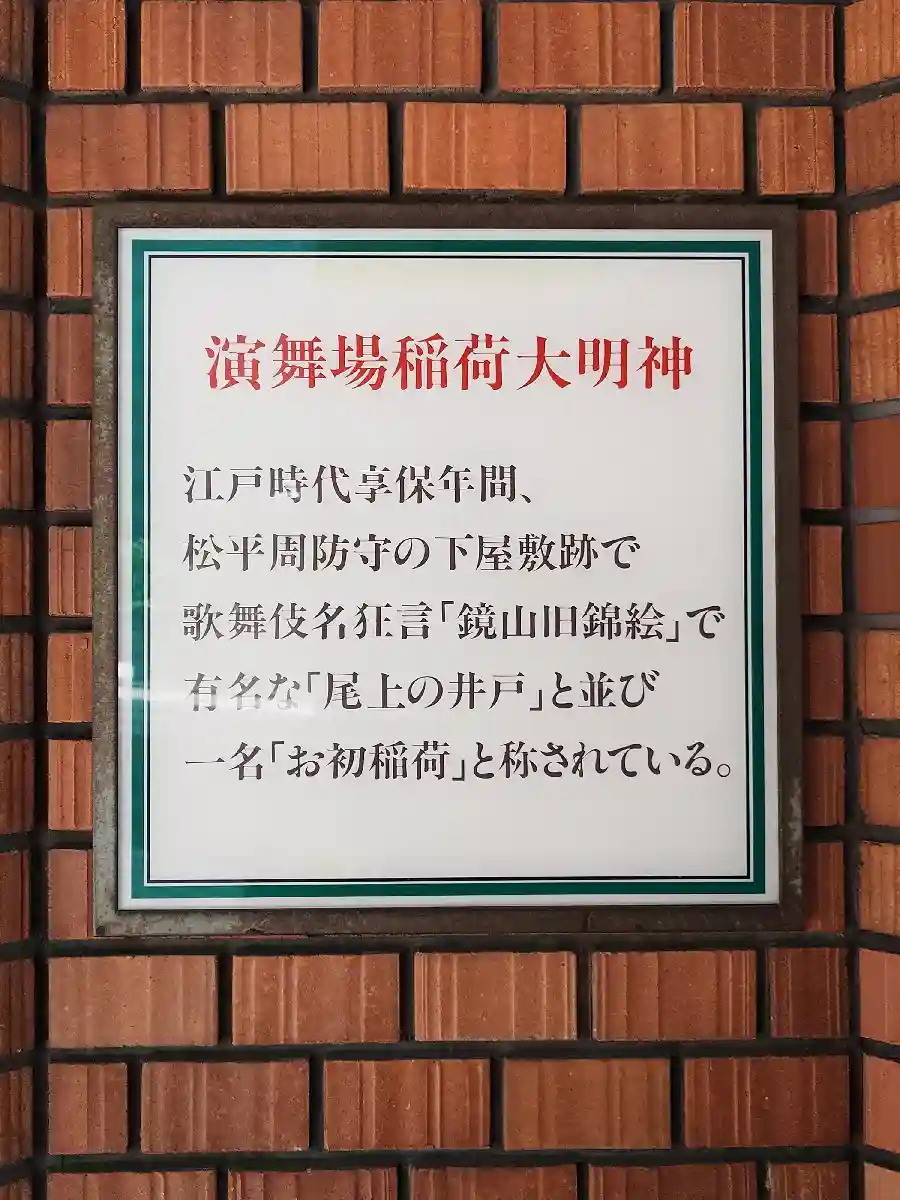 演舞場稲荷大明神
江戸時代享保年間、
松平周防守の下屋敷跡で
歌舞伎名狂言「鏡山旧錦絵」で
有名な「尾上の井戸」と並び
一名「お初稲荷」と称されている。